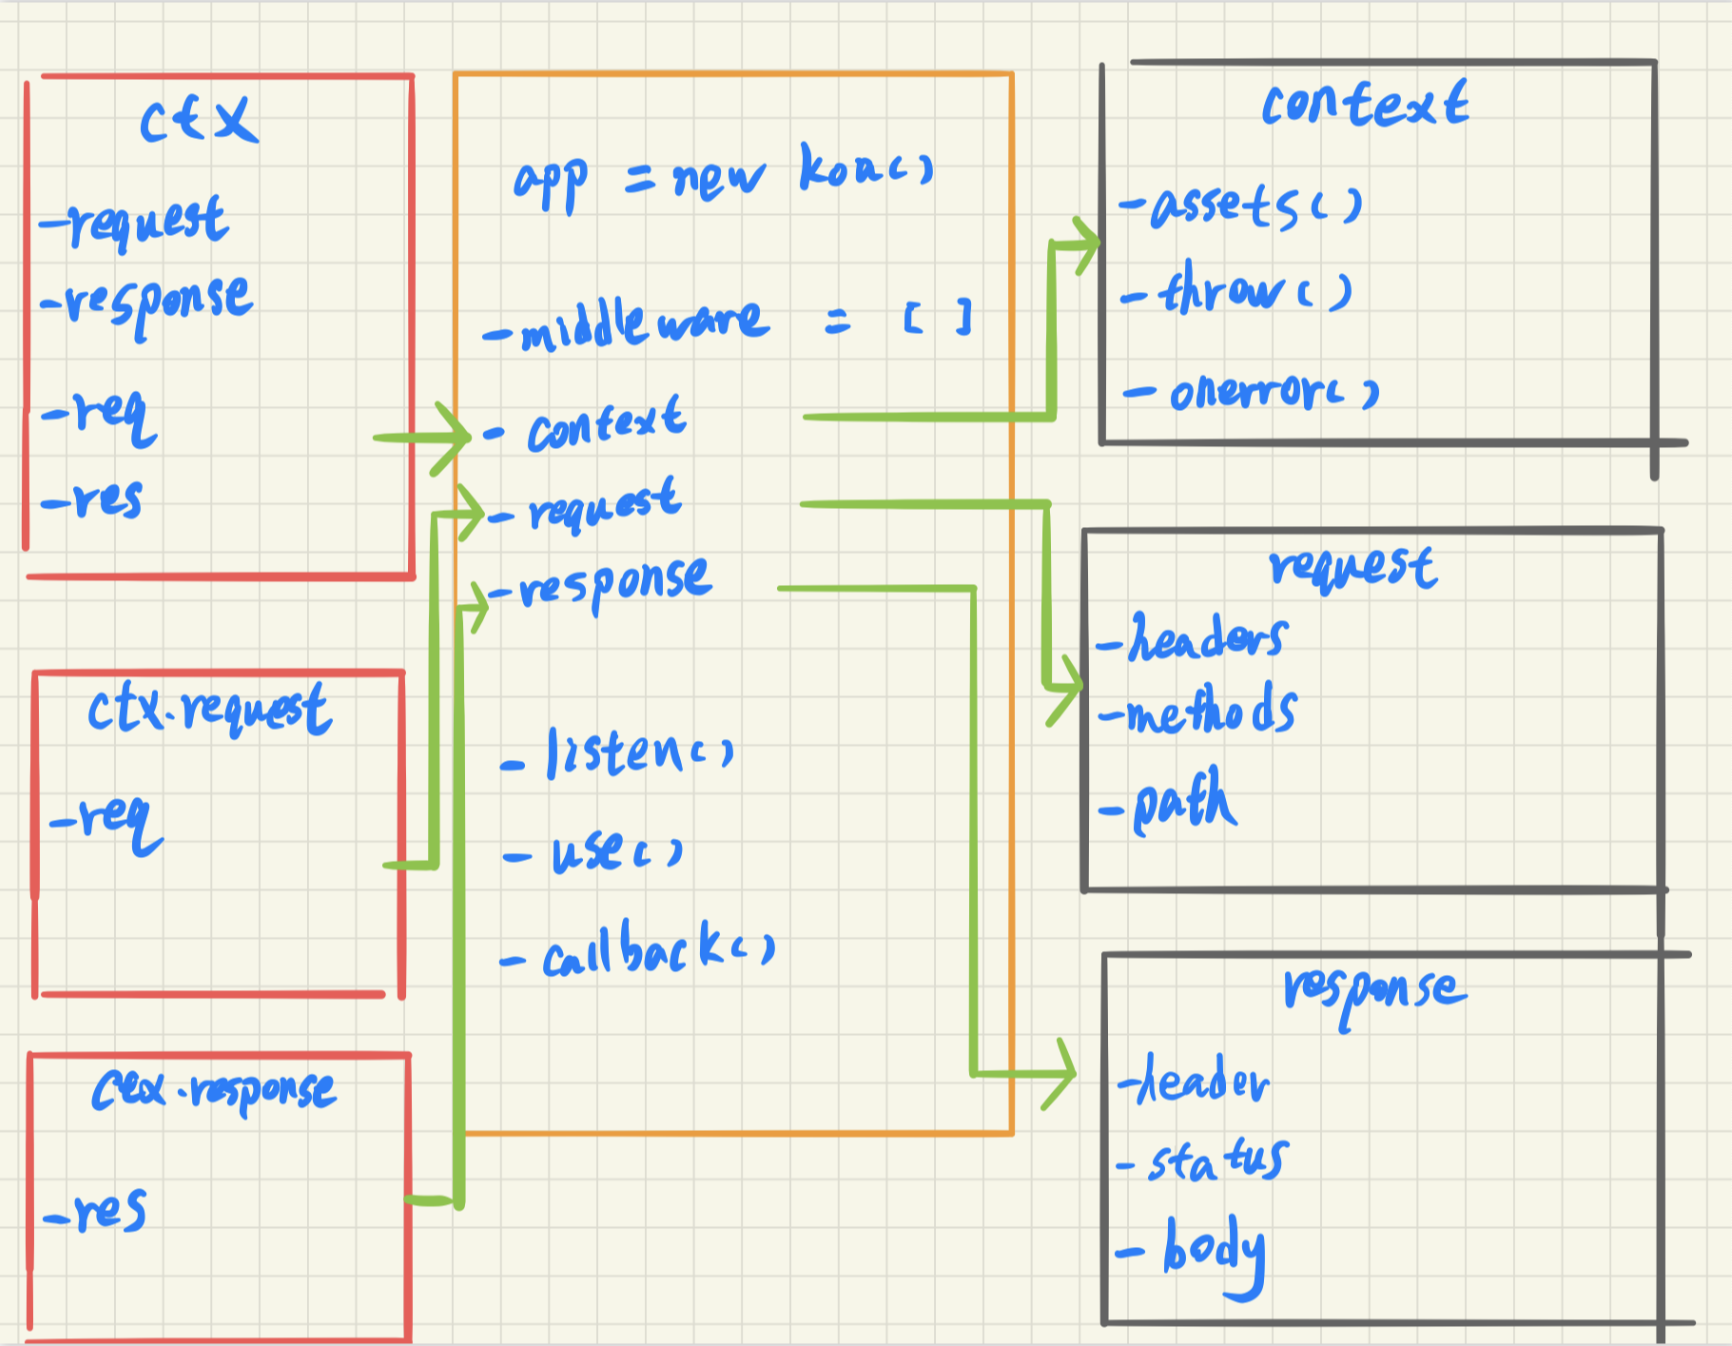 ctx
-request
-response
-req
-res
ctx.request
-req
ctx.response
-res
app = new koa()
-middleware = [ ]
- context
- request
-response
- listen()
- use()
- callback()
context
-assets()
-throw()
- onerror()
request
-headers
-methods
-path
response
-header
-status
- body